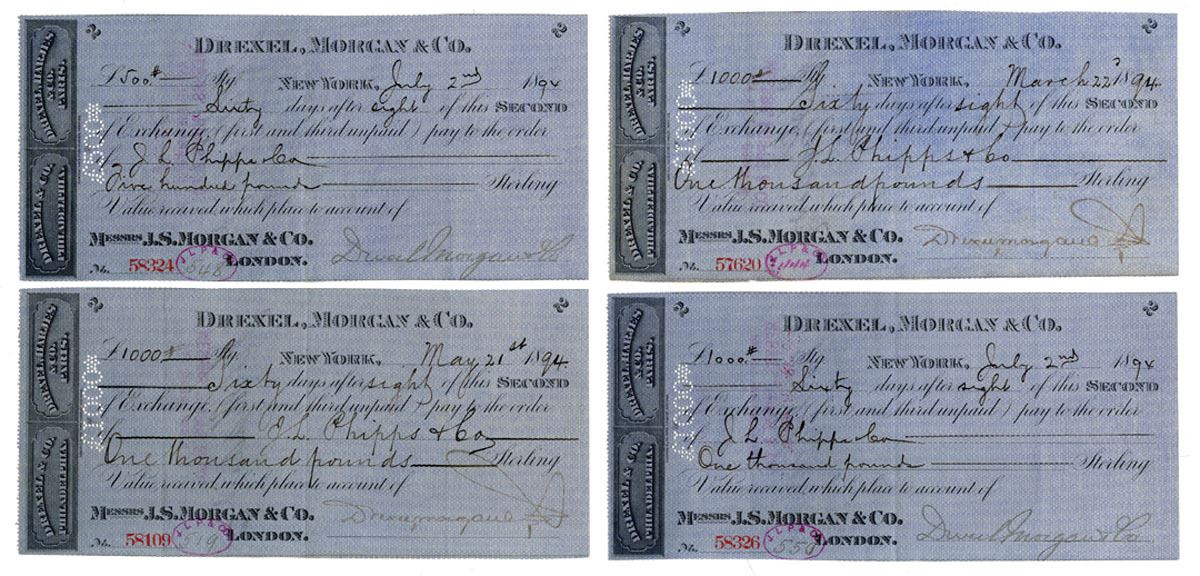 2 2
DREXEL, HARJES & CO. PARIS.
DREXEL & CO. PHILADELPHIA.
£500
DREXEL, MORGAN & CO.
£500.#— Stg NEW YORK, July 2nd 1894
Sixty days after sight of this SECOND
of Exchange, (first and third unpaid) pay to the order
of J. L. Phipps & Co
Five hundred pounds Sterling
Value received, which place to account of
MESSRS J.S. MORGAN & CO.
No. 58324 LONDON.
J L P & Co
548
Drexel Morgan & Co
2 2
DREXEL, HARJES & CO. PARIS.
DREXEL & CO. PHILADELPHIA.
£1000
DREXEL, MORGAN & CO.
£1000#— Stg NEW YORK, March 22d 1894
Sixty days after sight of this SECOND
of Exchange, (first and third unpaid) pay to the order
of J. L. Phipps & Co
One thousand pounds Sterling
Value received, which place to account of
MESSRS J.S. MORGAN & CO.
No. 57620 LONDON.
J L P & Co
Drexel Morgan & Co
2 2
DREXEL, HARJES & CO. PARIS.
DREXEL & CO. PHILADELPHIA.
£1000
DREXEL, MORGAN & CO.
£1000#— Stg NEW YORK, May 21st 1894
Sixty days after sight of this SECOND
of Exchange, (first and third unpaid) pay to the order
of J. L. Phipps & Co
One thousand pounds Sterling
Value received, which place to account of
MESSRS J.S. MORGAN & CO.
No. 58109 LONDON.
J L P & Co
519
Drexel Morgan & Co
2 2
DREXEL, HARJES & CO. PARIS.
DREXEL & CO. PHILADELPHIA.
£1000
DREXEL, MORGAN & CO.
£1000.#— Stg NEW YORK, July 2nd 1894
Sixty days after sight of this SECOND
of Exchange, (first and third unpaid) pay to the order
of J. L. Phipps & Co
One thousand pounds Sterling
Value received, which place to account of
MESSRS J.S. MORGAN & CO.
No. 58326 LONDON.
J L P & Co
550
Drexel Morgan & Co